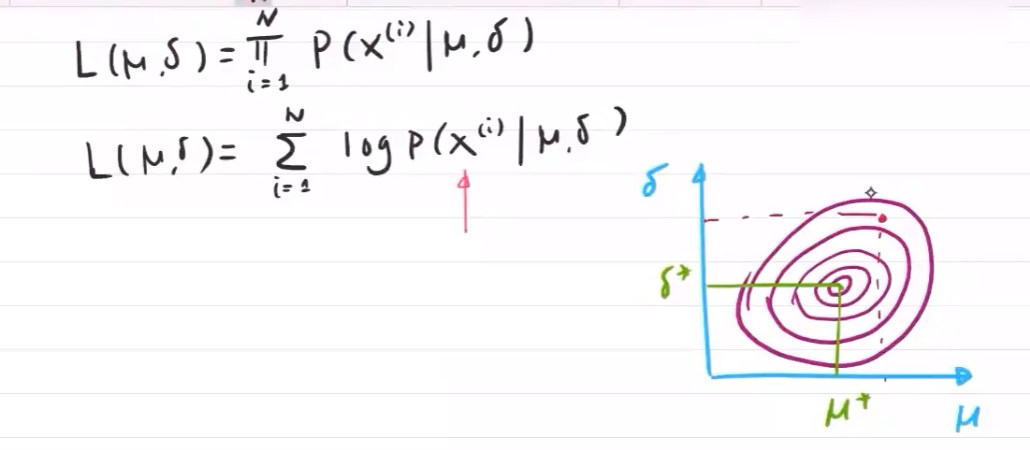 L(μ,δ) = ∏_{i=1}^{N} P(x^{(i)} | μ,δ)
L(μ,δ) = ∑_{i=1}^{N} log P(x^{(i)} | μ,δ)
δ
δ*
μ*
μ